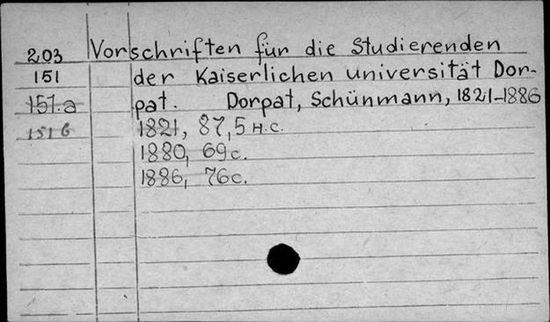 203 Vorschriften für die Studierenden
151 der Kaiserlichen universität Dor-
151.a pat. Dorpat, Schünmann, 1821-1886
151б 1821, 87,5 н.с.
1880, 69с.
1886, 76с.